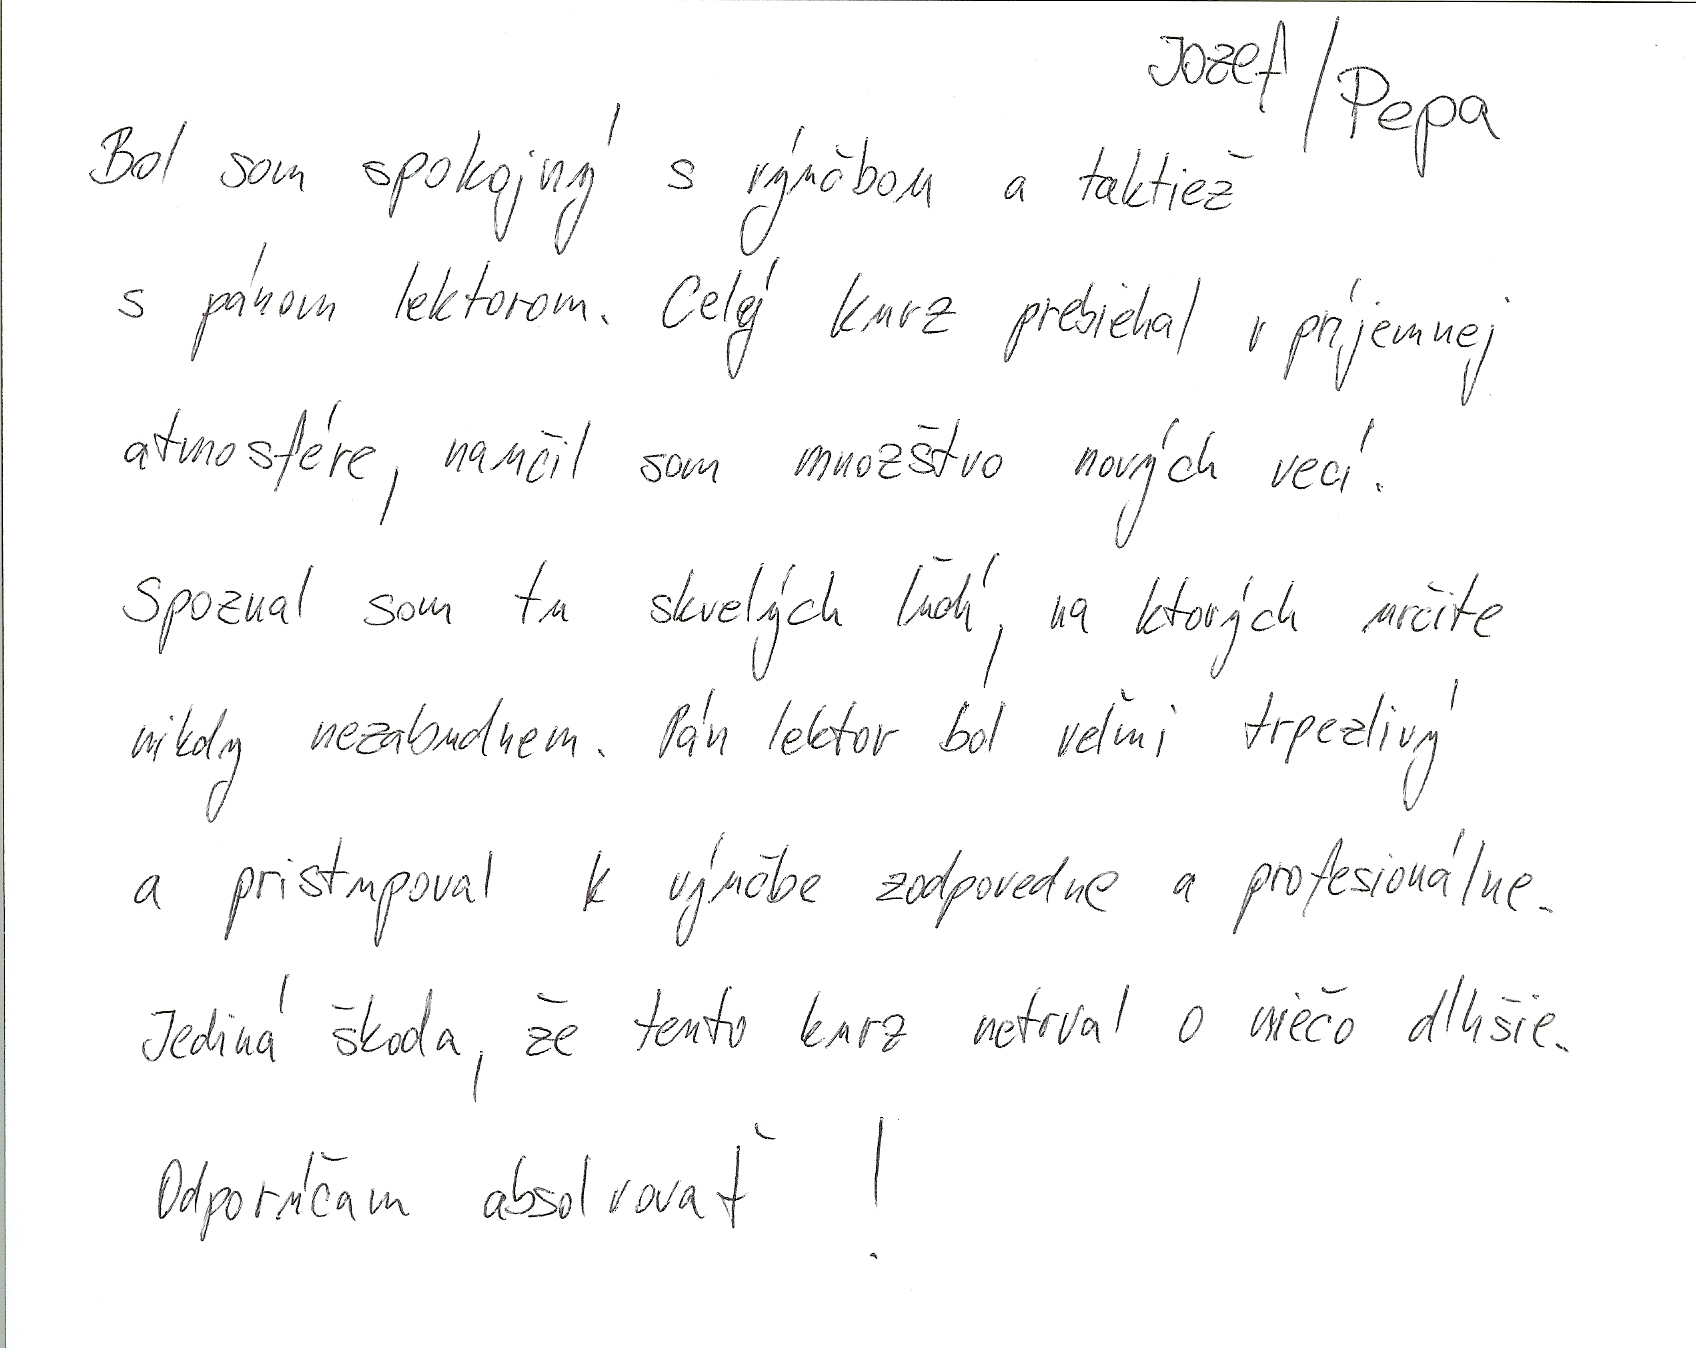 Jozef / Pepa
Bol som spokojný s výučbou a taktiež
s pánom lektorom. Celý kurz prebiehal v príjemnej
atmosfére, naučil som množstvo nových vecí.
Spoznal som tu skvelých ľudí, na ktorých určite
nikdy nezabudnem. Pán lektor bol veľmi trpezlivý
a pristupoval k výučbe zodpovedne a profesionálne.
Jediná škoda, že tento kurz netrval o niečo dlhšie.
Odporúčam absolvovať !